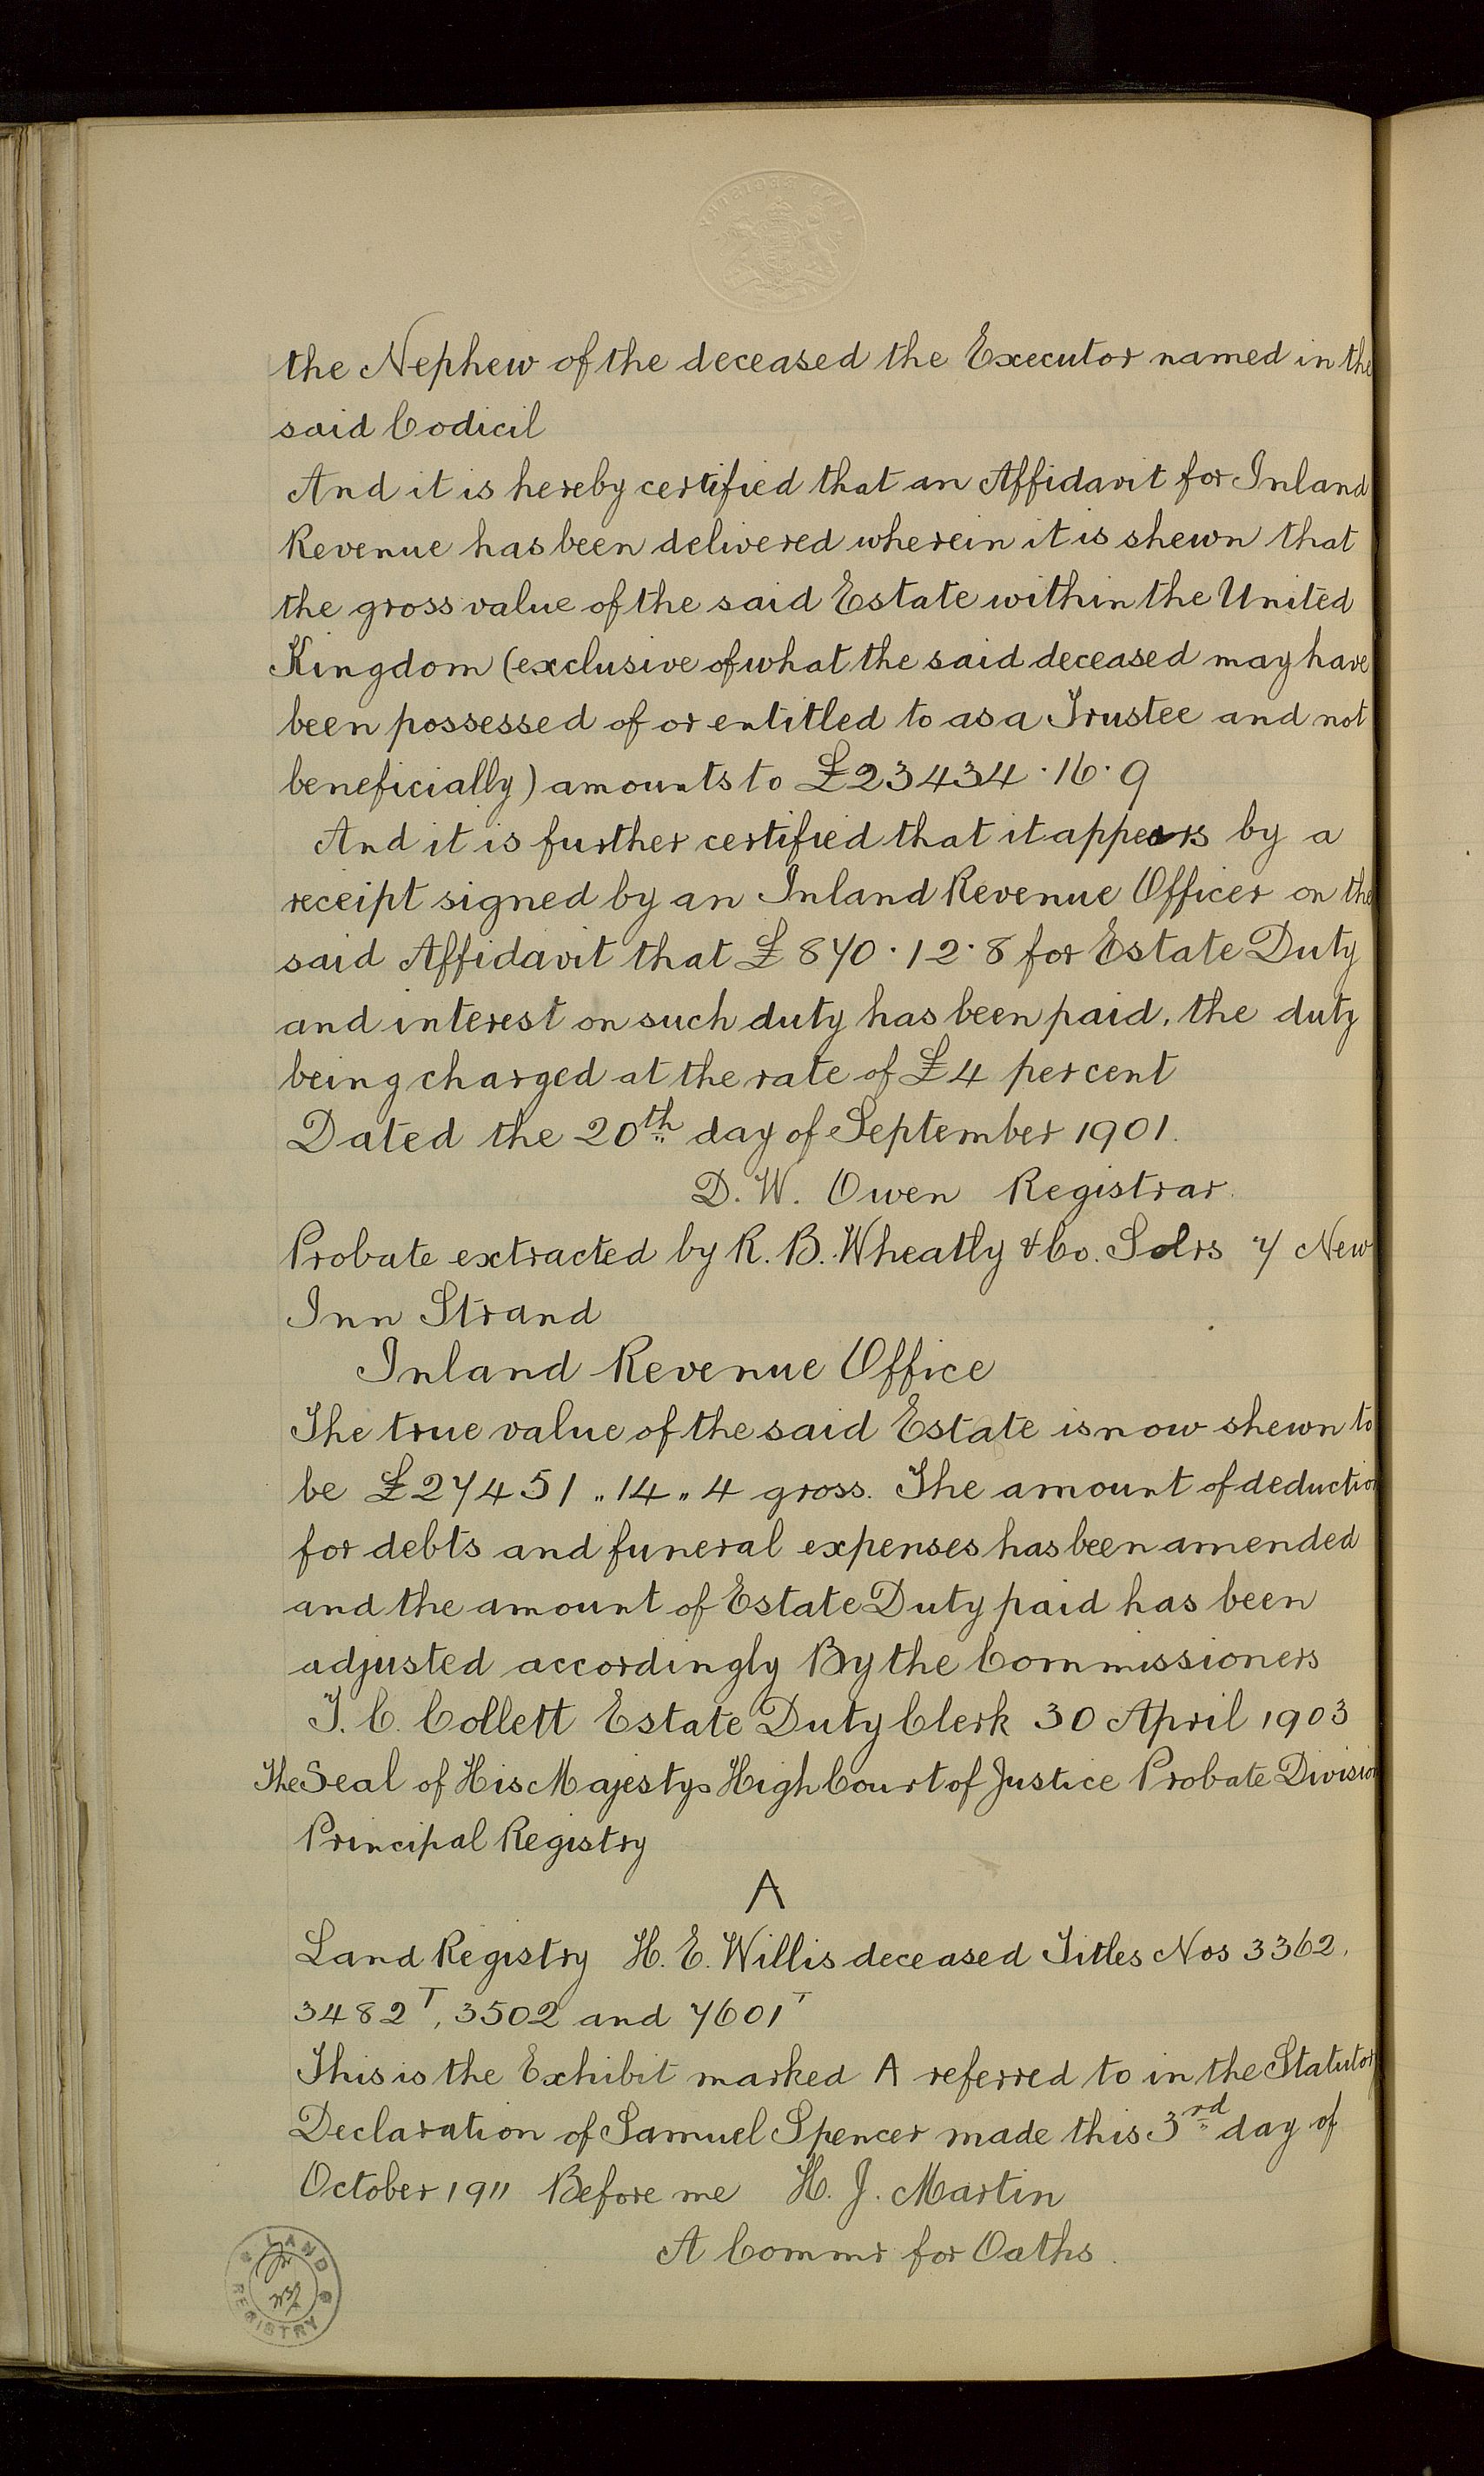 the Nephew of the deceased the Executor named in the
said Codicil
And it is hereby certified that an Affidavit for Inland
Revenue has been delivered wherein it is shewn that
the gross value of the said Estate within the United
Kingdom (exclusive of what the said deceased may have
been possessed of or entitled to as a Trustee and not
beneficially) amounts to £23434·16·9
And it is further certified that it appears by a
receipt signed by an Inland Revenue Officer on the
said Affidavit that £870·12·8 for Estate Duty
and interest on such duty has been paid, the duty
being charged at the rate of £4 per cent
Dated the 20th day of September 1901.
D. W. Owen Registrar.
Probate extracted by R. B. Wheatly & Co. Solrs 7 New
Inn Strand
Inland Revenue Office
The true value of the said Estate is now shewn to
be £27451 „ 14 „ 4 gross. The amount of deduction
for debts and funeral expenses has been amended
and the amount of Estate Duty paid has been
adjusted accordingly By the Commissioners
T. C. Collett Estate Duty Clerk 30 April 1903
The Seal of His Majestys High Court of Justice Probate Division
Principal Registry
A
Land Registry H. E. Willis deceased Titles Nos 3362,
3482T, 3502 and 7601T
This is the Exhibit marked A referred to in the Statutory
Declaration of Samuel Spencer made this 3rd day of
October 1911 Before me H. J. Martin
A Commr for Oaths.
LAND REGISTRY